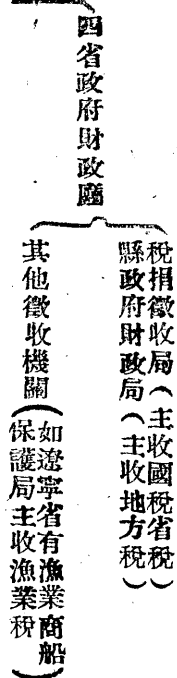 四省政府財政廳
稅捐徵收局(主收國稅省稅)
縣政府財政局(主收地方稅)
其他徵收機關(如遼寧省有漁業商船
保護局主收漁業稅)